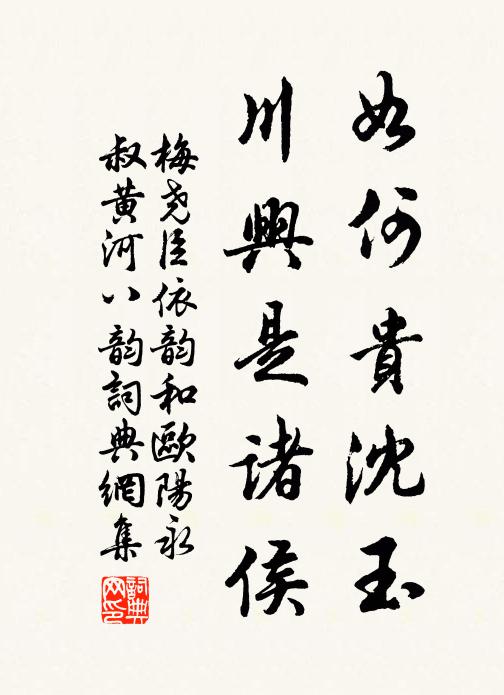 如何貴沈玉
川興是諸侯
梅尧臣依韵和歐陽永
叔黄河八韵詞典網集
詞典
网印